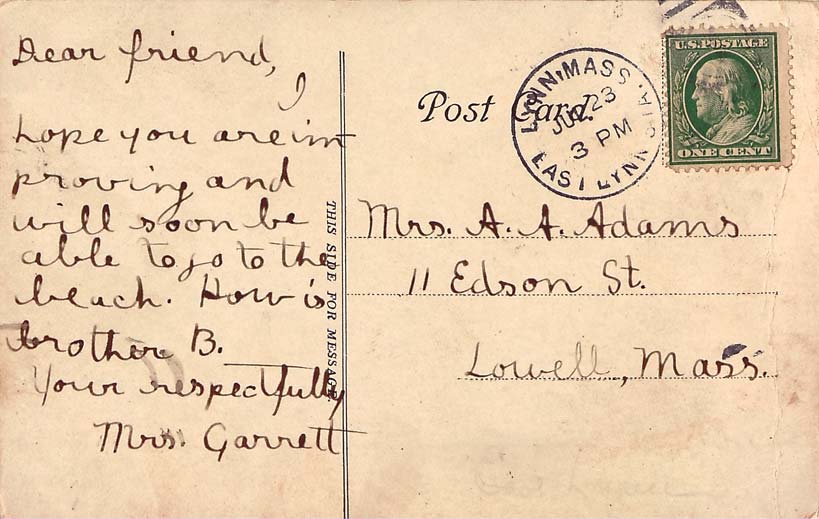 Dear friend,
I
hope you are im
proving and
will soon be
able to go to the
beach. How is
brother B.
Your respectfully
Mrs. Garrett
THIS SIDE FOR MESSAGE
Post Card.
LYNN, MASS.
23
3 PM
EAST LYNN STA.
U.S. POSTAGE
ONE CENT
Mrs. A. A. Adams
11 Edson St.
Lowell, Mass.